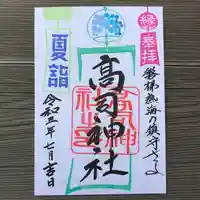 奉拝
磐梯熱海の鎮守さま
高司神社
夏詣
令和三年七月吉日